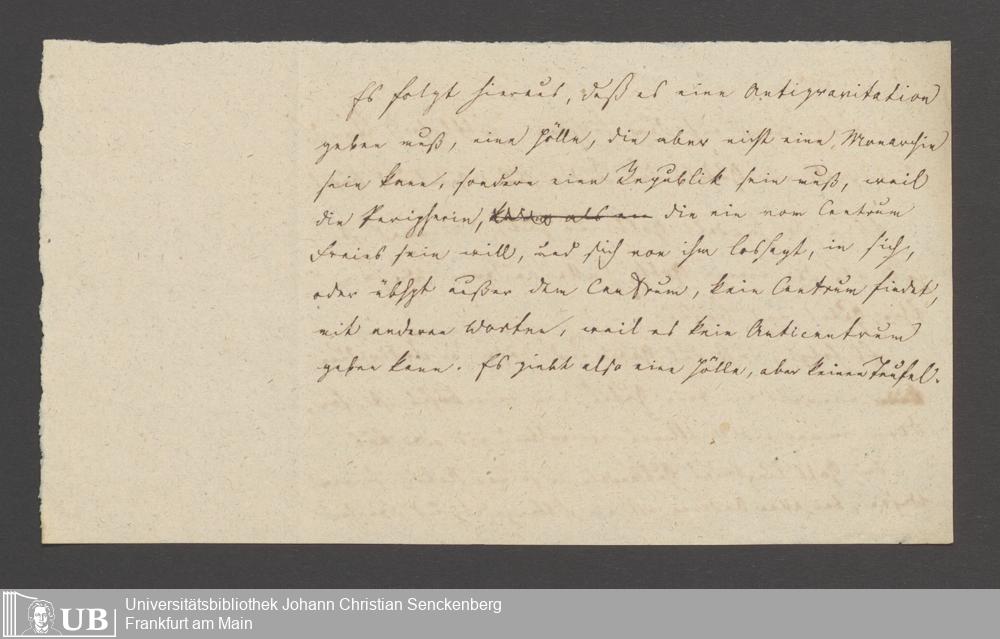 Es folgt hieraus, daß es eine Antigravitation
geben muß, eine Hölle, die aber nicht eine Monarchie
sein kann, sondern eine Republik sein muß, weil
die Peripherie, als die ein vom Centrum
Freies sein will, und sich von ihm lossagt, in sich,
oder übhpt außer dem Centrum, kein Centrum findet,
mit anderen Worten, weil es kein Anticentrum
geben kann. Es giebt also eine Hölle, aber keinen Teufel.
UB Universitätsbibliothek Johann Christian Senckenberg
Frankfurt am Main